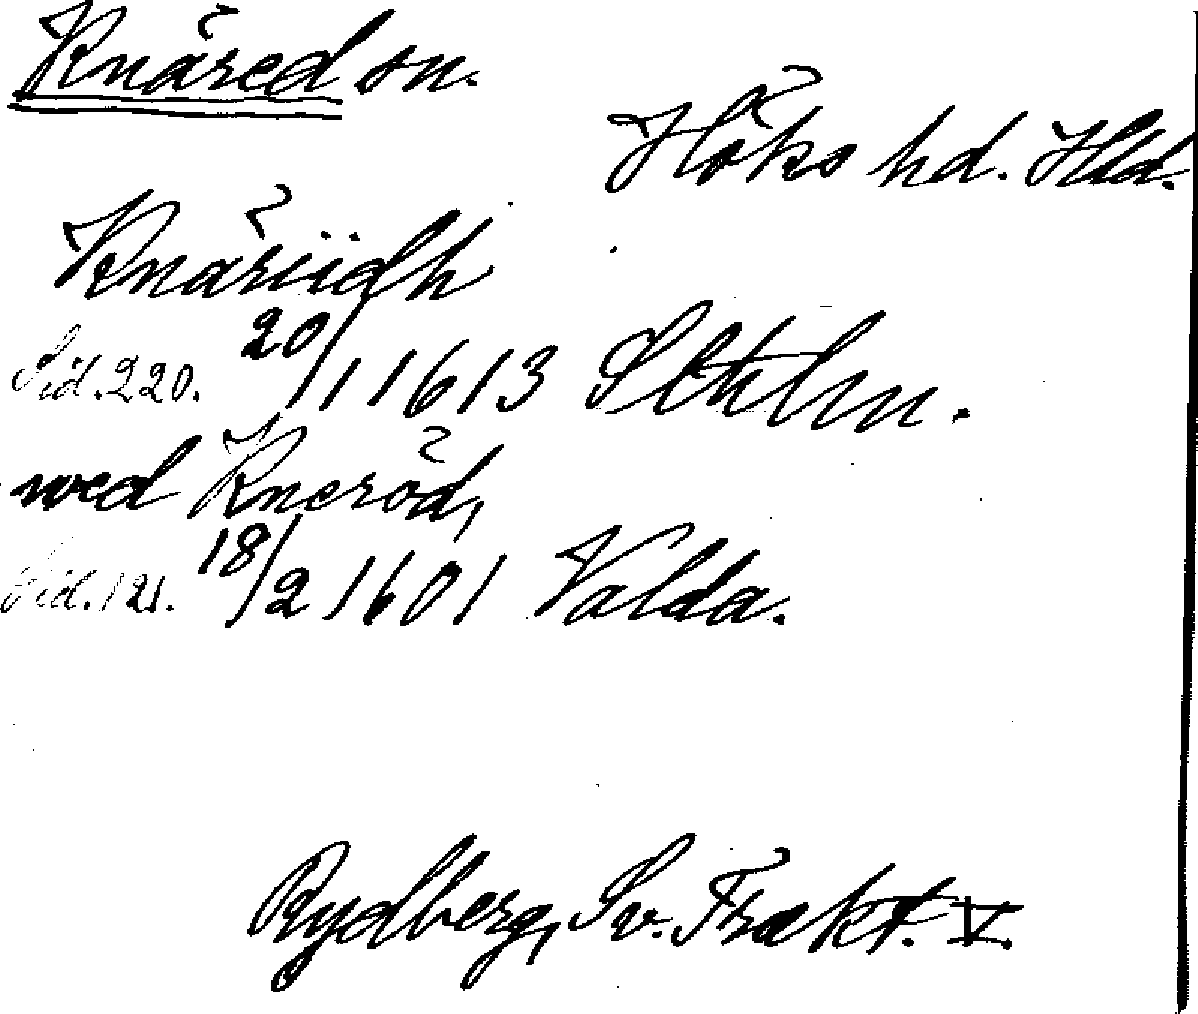 Knäred sn.
Höks hd. Hld.
Knäriidh
Sid. 220. 20/11 1613 Sthlm.
med Kneröd,
Sid. 121. 18/2 1601 Valda.
Rydberg, Sv. Trakt. V.